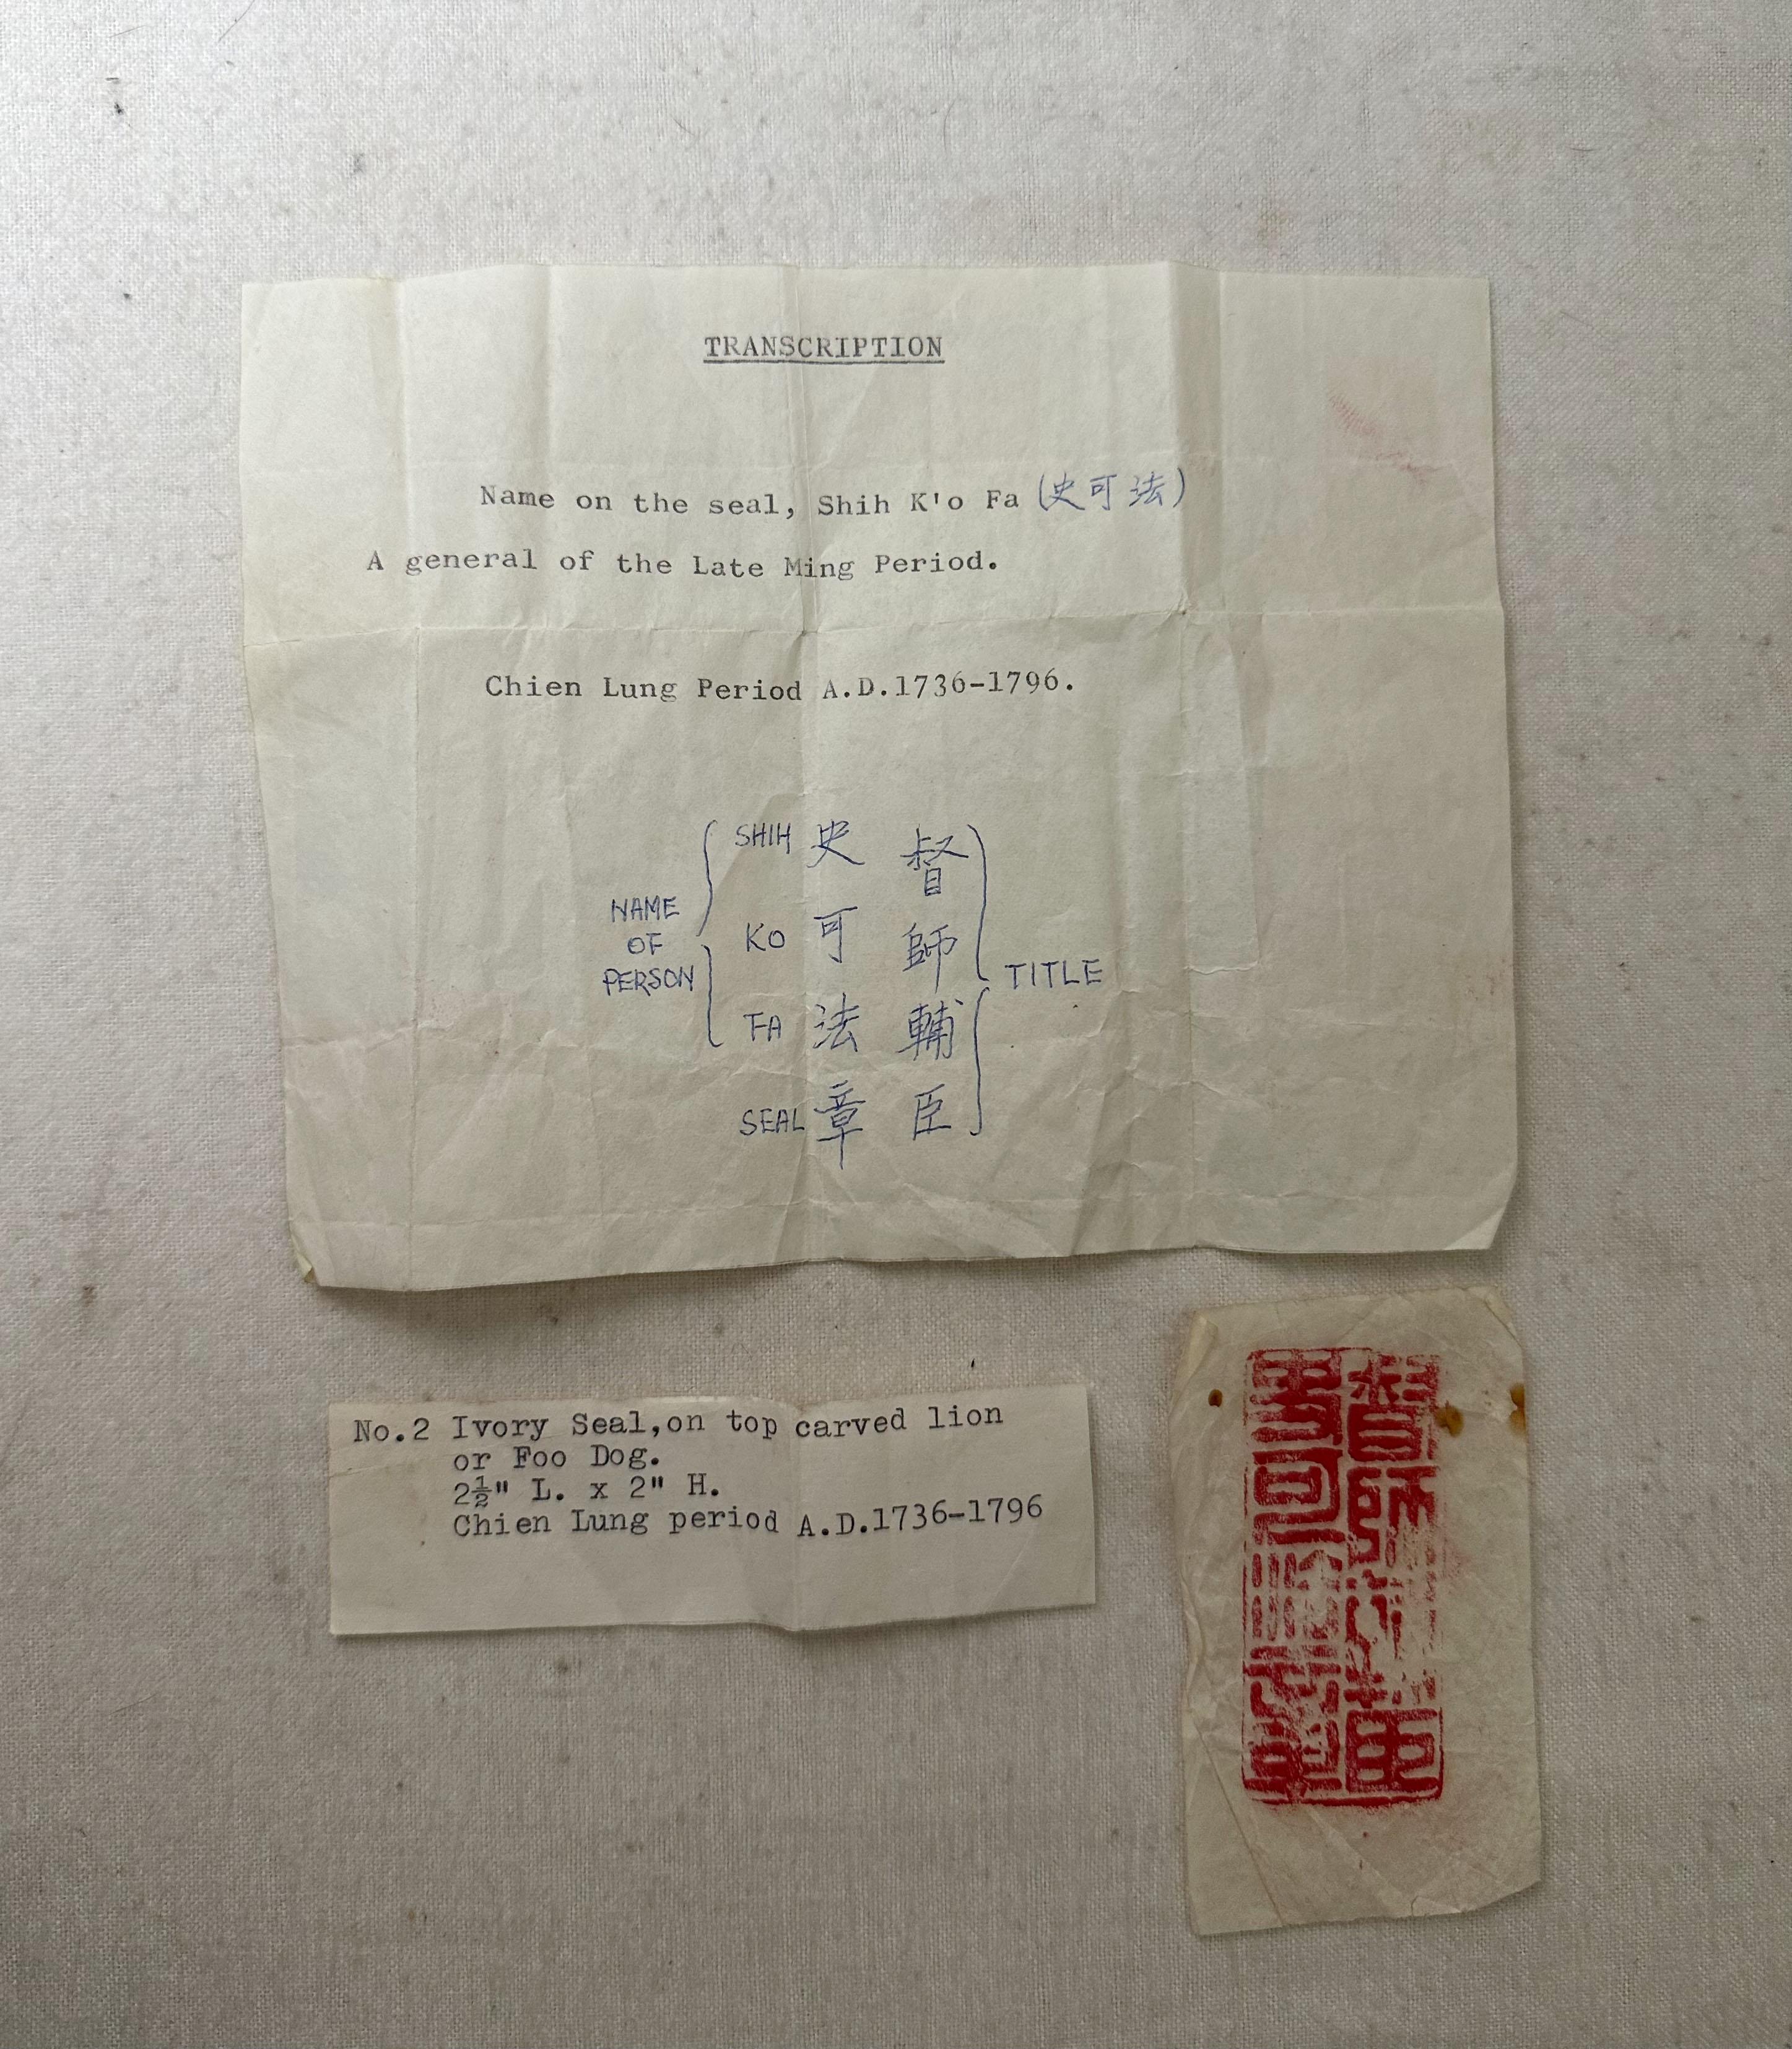 TRANSCRIPTION
Name on the seal, Shih K'o Fa (史可法)
A general of the Late Ming Period.
Chien Lung Period A.D.1736-1796.
NAME
OF
PERSON
SHIH 史 督
KO 可 師
FA 法 輔
SEAL 章 臣
TITLE
No.2 Ivory Seal,on top carved lion
or Foo Dog.
2½" L. x 2" H.
Chien Lung period A.D.1736-1796
督師輔臣
史可法章